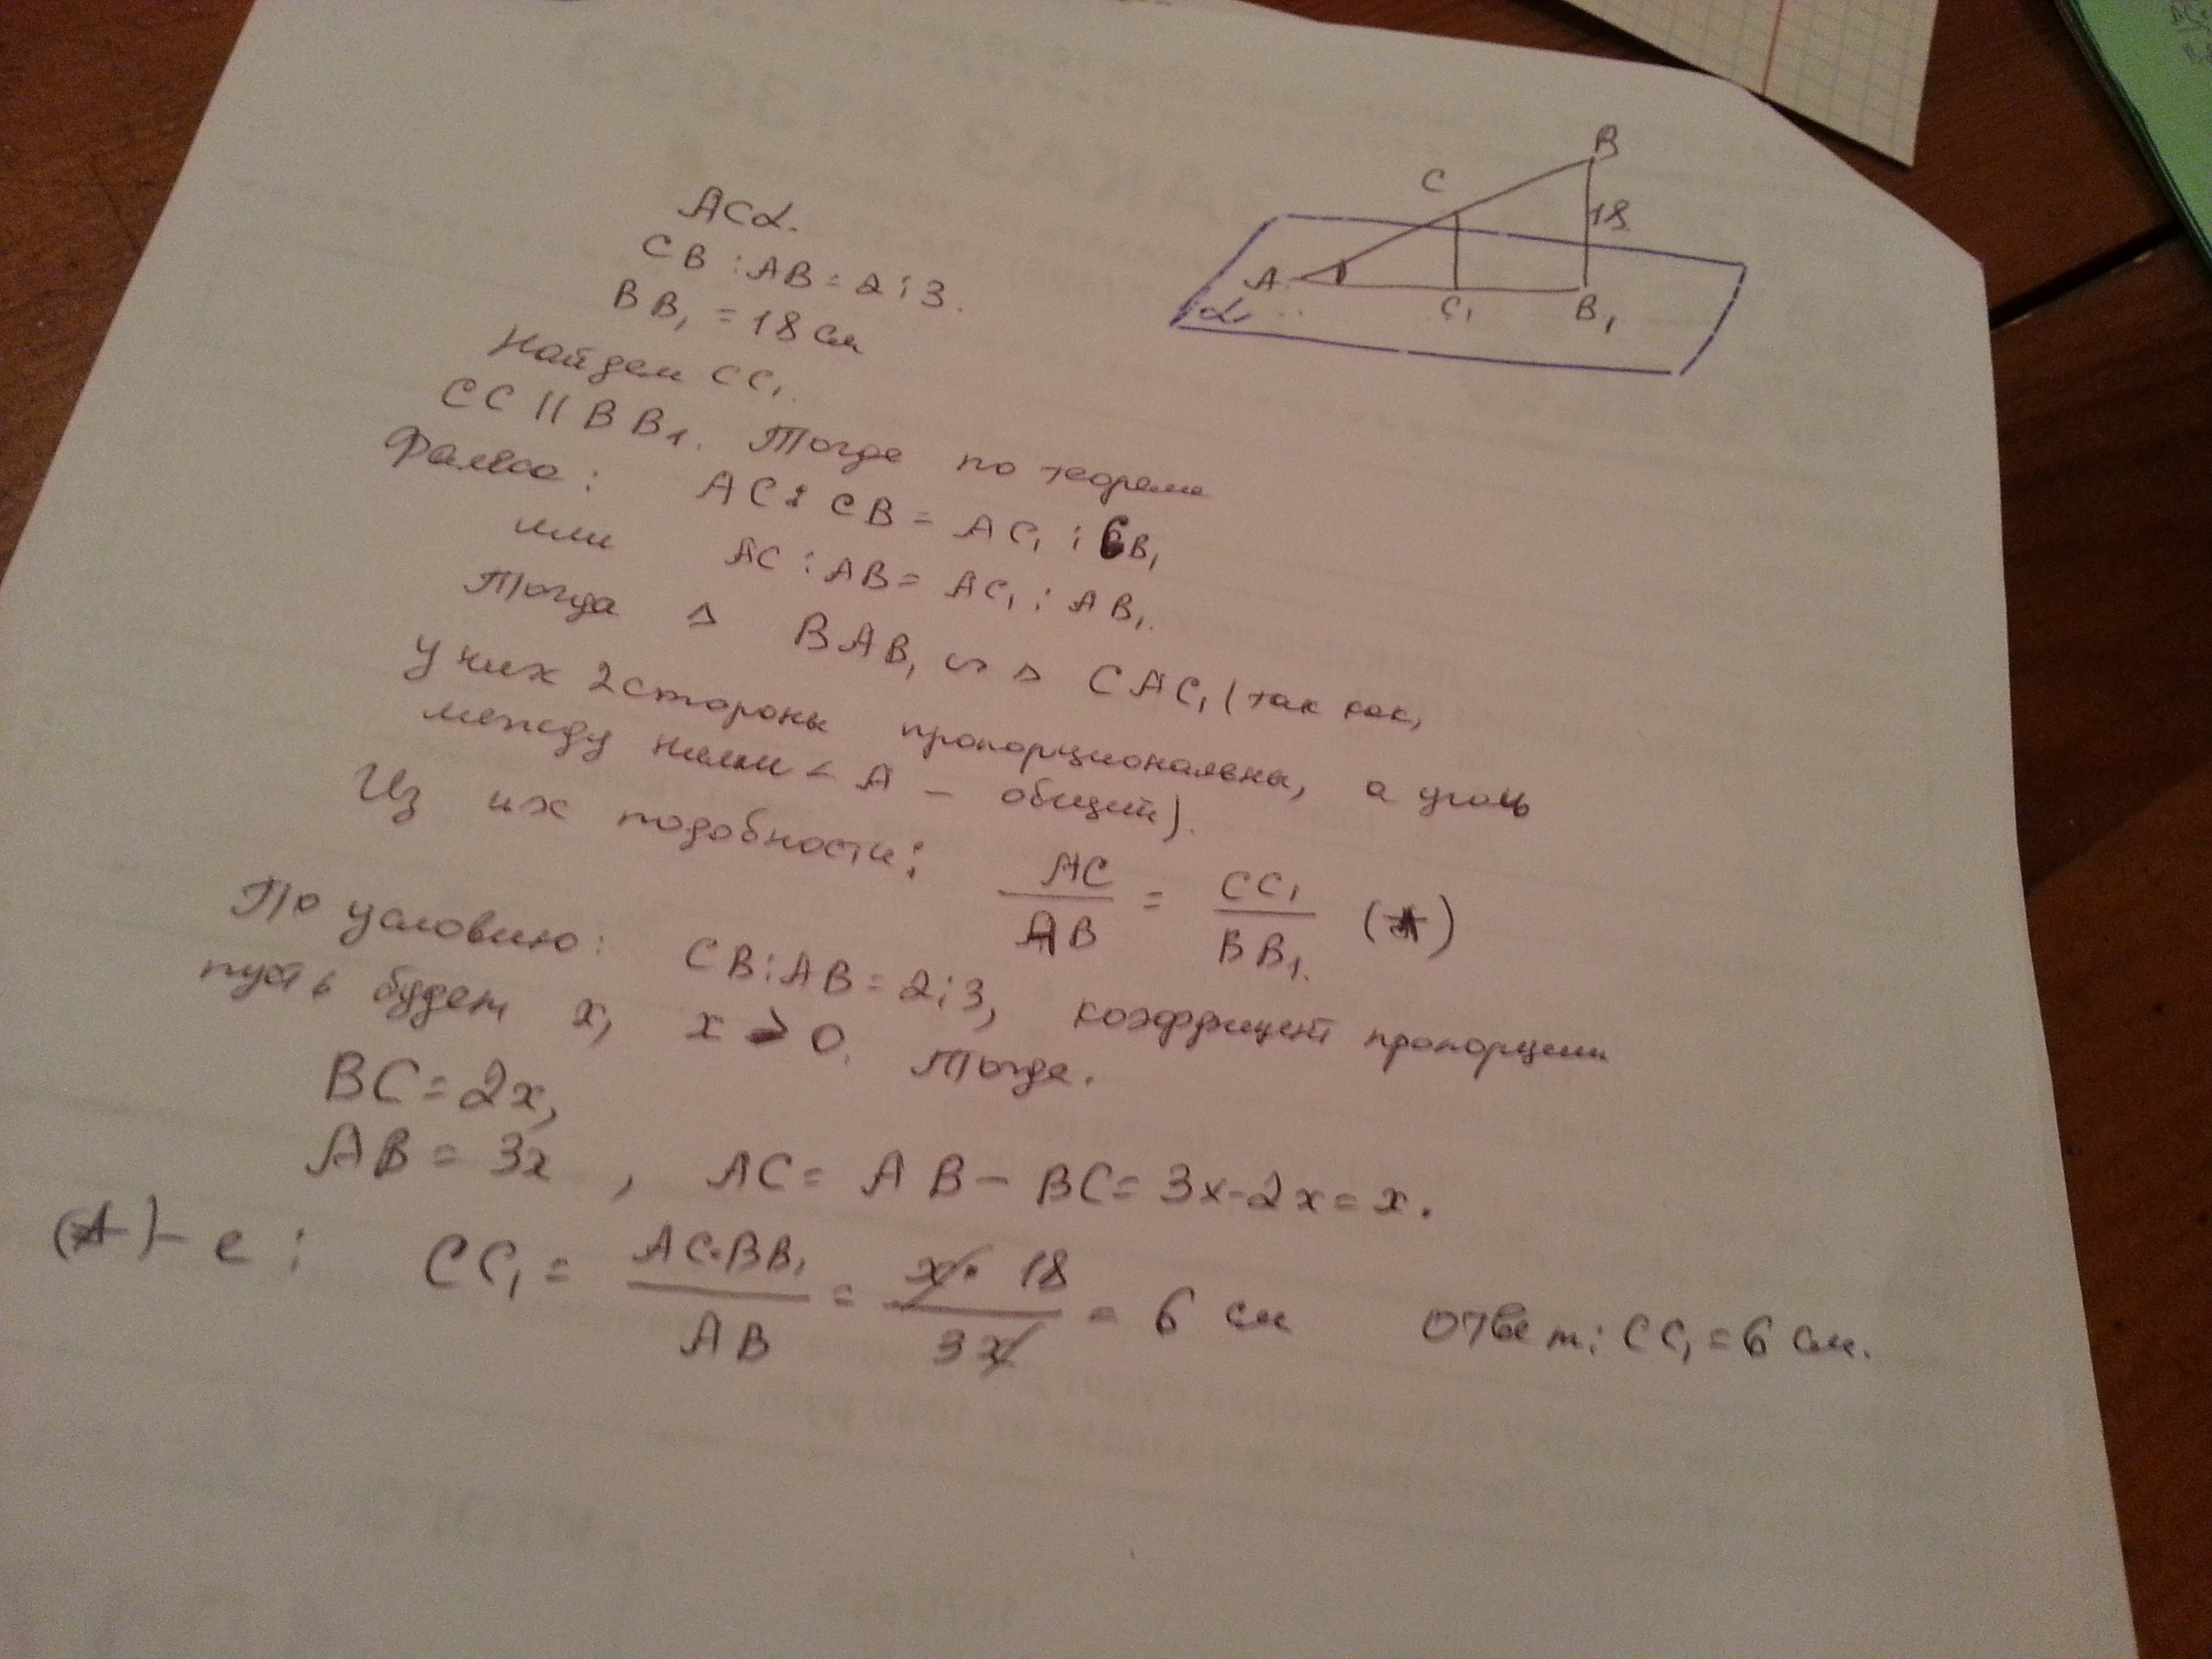 A⊂α.
CB : AB = 2 : 3.
BB₁ = 18 см
Найдем CC₁.
CC || BB₁. Тогда по теореме
Фалеса: AC : CB = AC₁ : CB₁
или AC : AB = AC₁ : AB₁.
Тогда Δ BAB₁ ∾ Δ CAC₁ (так как,
у них 2 стороны пропорциональны, а угол
между ними < A - общий).
Из их подобности: AC/AB = CC₁/BB₁. (*)
По условию: CB : AB = 2 : 3, коэффициент пропорции
пусть будет x, x > 0. Тогда.
BC = 2x,
AB = 3x, AC = AB - BC = 3x - 2x = x.
(*) - е: CC₁ = AC·BB₁/AB = x·18/3x = 6 см Ответ: CC₁ = 6 см.
B
C
18
A
C₁
B₁
α